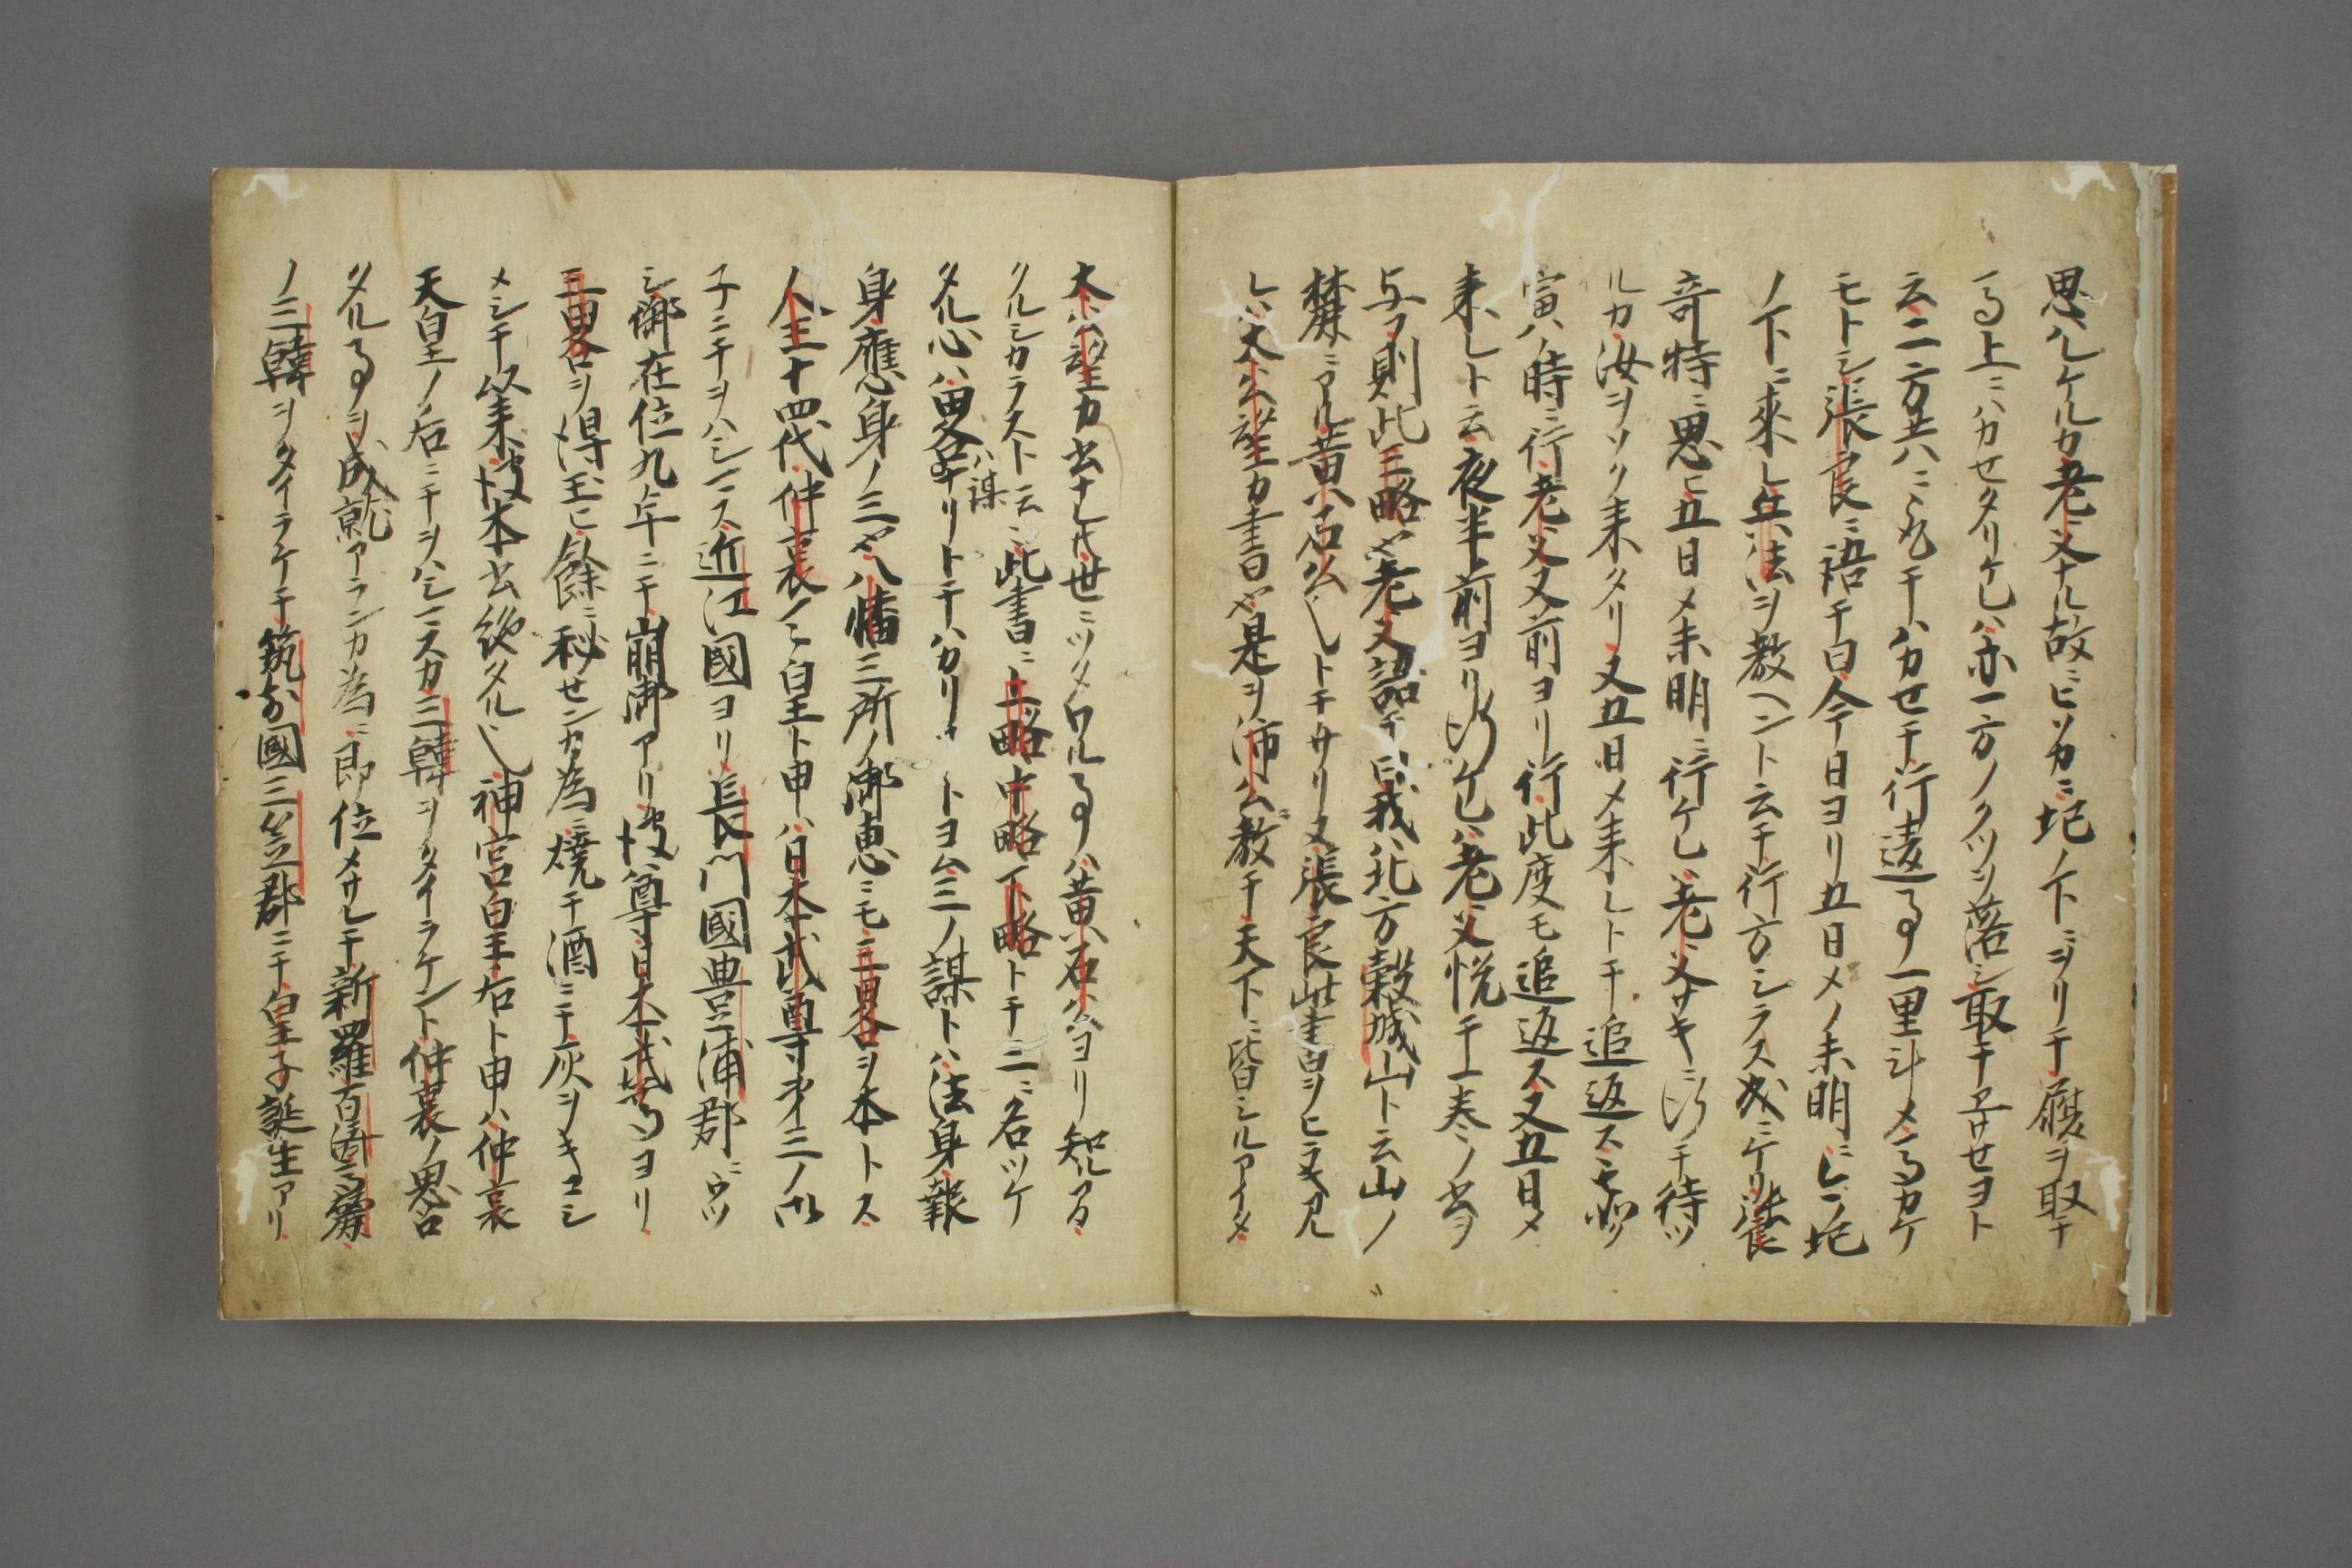 思ハレケルカ老父ナル故ニヒソカニ圯ノ下ニヲリテ履ヲ取テ
上ニハカセタリケレハ亦一方ノクツヲ落シ取テハカセヨト
云二方共ニハカセテ行違事一里斗メ
モトシ張良ニ語テ曰今日ヨリ五日メノ未明ニ圯
ノ下ニ来レ兵法ヲ教ヘント云テ行方シラス成ニケリ張良
奇特ニ思ヒ五日メ未明ニ行ケレハ老父サキニ行テ待ツ
ルカ汝ヲソク来タリ又五日メ来レトテ追返ス
寅ノ時ニ行老父又前ヨリ行此度モ追返ス又五日メ
来レト云夜半前ヨリ行ケレハ老父悦テ一巻ノ書ヲ
与フ則此三略也老父語テ曰我ハ北方穀城山ト云山ノ
麓ニアル黄石公トテサリヌ張良此書ヲヒラキ見
レハ太公望カ書也是ヲ沛公教テ天下ニ皆シルアイタ
太公望カ書ナレ共世ニツタワル事ハ黄石公ヨリ知ルアル
クルシカラスト云ニ此書ニ上略中略下略トテ三ニ名ツケ
タル心ハ略ハ謀ナリトテハカリ トヨム三ノ謀トハ法身報
身應身ノ三也八幡三所ノ御恵ニモ三略ヲ本トス
人王十四代仲哀ノ皇ト申ハ日本武尊第三ノ御
子ニテヲハシマス近江國ヨリ長門國豊浦郡ニウツ
シ御在位九年ニテ崩御アリ彼尊日本武尊ヨリ
三略ヲ得玉ヒ餘ニ秘センカ為ニ焼テ酒ニテ灰ヲキコシ
メシテ以来彼本書絶タル也神宮皇后ト申ハ仲哀
天皇ノ后ニテヲハシマスカ三韓ヲタイラケント仲哀ノ思召
タル事ヲ成就アランカ為ニ即位メサレテ新羅百済高麗
ノ三韓ヲタイラケテ筑前國三笠郡ニテ皇子誕生アリ